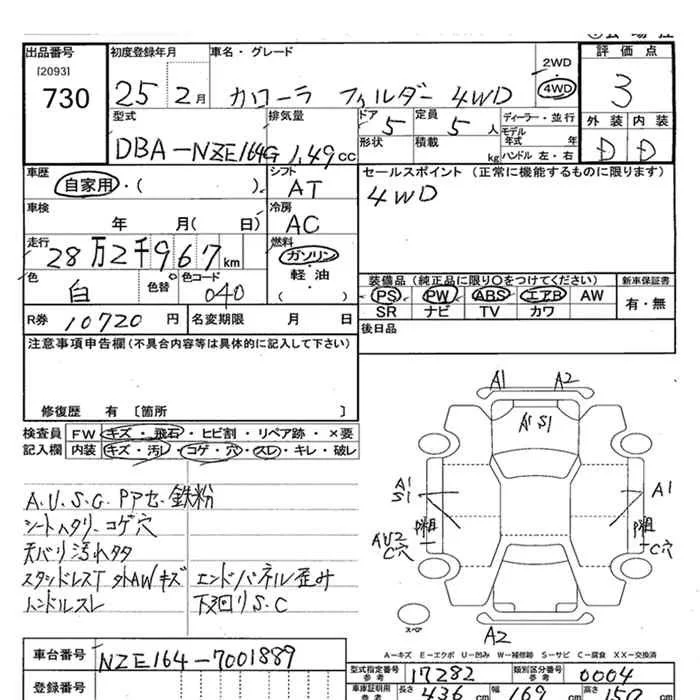 出品番号
[2093]
730
初度登録年月
25 2月
車名・グレード
カローラ フィルダー 4WD
2WD
・
4WD
評価点
3
外装 内装
D D
型式
DBA-NZE164G
排気量
1.49cc
ドア
5
形状
定員
5人
積載
kg
ディーラー・並行
モデル
年式 年
ハンドル 左・右
車歴
自家用・( )
シフト
AT
セールスポイント (正常に機能するものに限ります)
4WD
車検
年 月( 日)
冷房
AC
走行
28万2千967km
燃料
ガソリン
・
軽・油
・
( )
色
白
色替
色コード
040
装備品 (純正品に限り○をつけてください)
PS PW ABS エアB AW
SR ナビ TV カワ
新車保証書
有・無
R券 10720円
名変期限 月 日
後日品
注意事項申告欄(不具合内容等は具体的に記入して下さい)
修復歴 有 〔箇所 〕
検査員
記入欄
FW キズ・飛石・ヒビ割・リペア跡・×要
内装 キズ・汚レ・コゲ・穴・スレ・キレ・破レ
A.U.S.C.PPアセ.鉄粉
シートヘタリ.コゲ穴
天バリ汚れタタ
スタッドレスT 外AWキズ
ハンドルスレ
エンドパネル歪み
下回りS.C
A1 A2
A1 S1
A1
S1
A1
AU2
C穴
C穴
スペア
A2
A-キズ E-エクボ U-凹み W-補修跡 S-サビ C-腐食 XX-交換済
車台番号
NZE164-7001889
登録番号
型式指定番号
参考
17282
類別区分番号
参考
0004
車庫証明用
参考
長さ 436 cm 幅 169 cm 高さ 150 cm